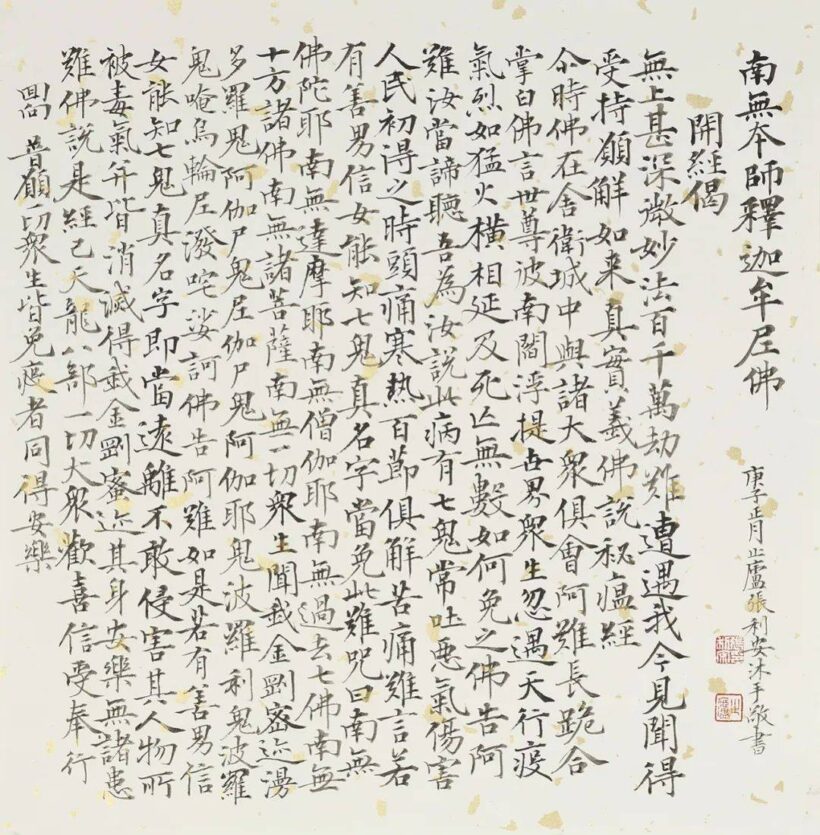 南無本師釋迦牟尼佛
開經偈
無上甚深微妙法百千萬劫難遭遇我今見聞得
受持願解如来真實義佛說秘瘟經
尒時佛在舍衛城中與諸大衆俱會阿難長跪合
掌白佛言世尊彼南閻浮提世界衆生忽遇天行疫
氣烈如猛火橫相延及死亡無數如何免之佛告阿
難汝當諦聽吾為汝說此病有七鬼常吐惡氣傷害
人民初得之時頭痛寒熱百節俱解苦痛難言若
有善男信女能知七鬼真名字當免此難咒曰南無
佛陀耶南無達摩耶南無僧伽耶南無過去七佛南無
十方諸佛南無諸菩薩南無一切衆生聞我金剛密迹漫
多羅鬼阿伽尸鬼尼伽尸鬼阿伽耶鬼波羅利鬼波羅
鬼唵烏輪尼潑咤娑訶佛告阿難如是若有善男信
女能知七鬼真名字即當遠離不敢侵害其人物所
被毒氣并皆消滅得我金剛密迹其身安樂無諸患
難佛說是經已天龍八部一切大衆歡喜信受奉行
普願一切衆生皆免疫者同得安樂
庚子正月止廬張利安沐手敬書